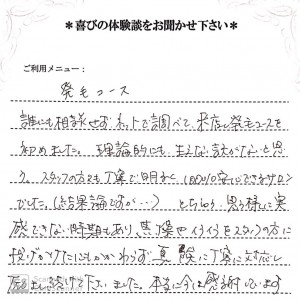 ＊喜びの体験談をお聞かせ下さい＊
ご利用メニュー：
発毛コース
誰にも相談せず、ネットで調べて、来店し発毛コースを
初めました。理論的にも、まちがない と思
う。スタッフの方も丁寧で明るく100％安心できるサロン
でした。（結果論ですが…）とちゅう、思う様に実
感できない時期もあり、焦燥やイライラをスタッフの方に
投げかけたにもかかわらず、真摯に丁寧に対応し
励まし続けて下さいました。本当に今は感謝しています